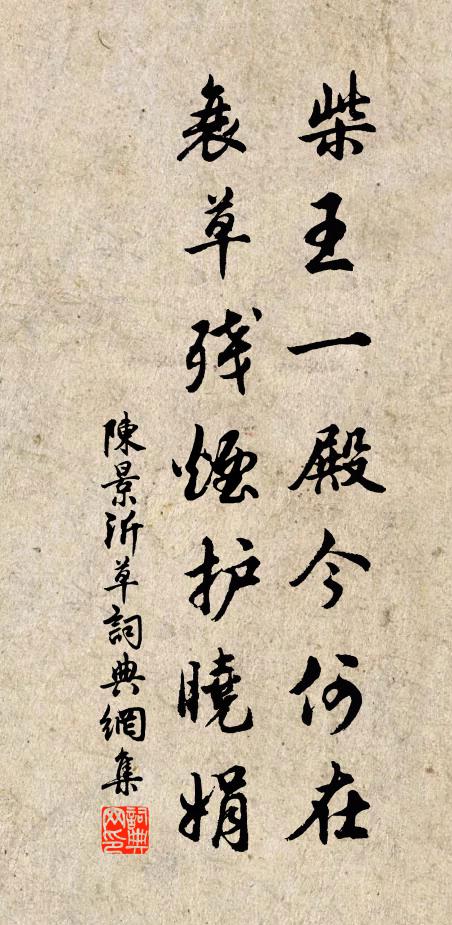 柴王一殿今何在
衰草残煙护曉娟
陳景沂草詞典網集
詞典网印